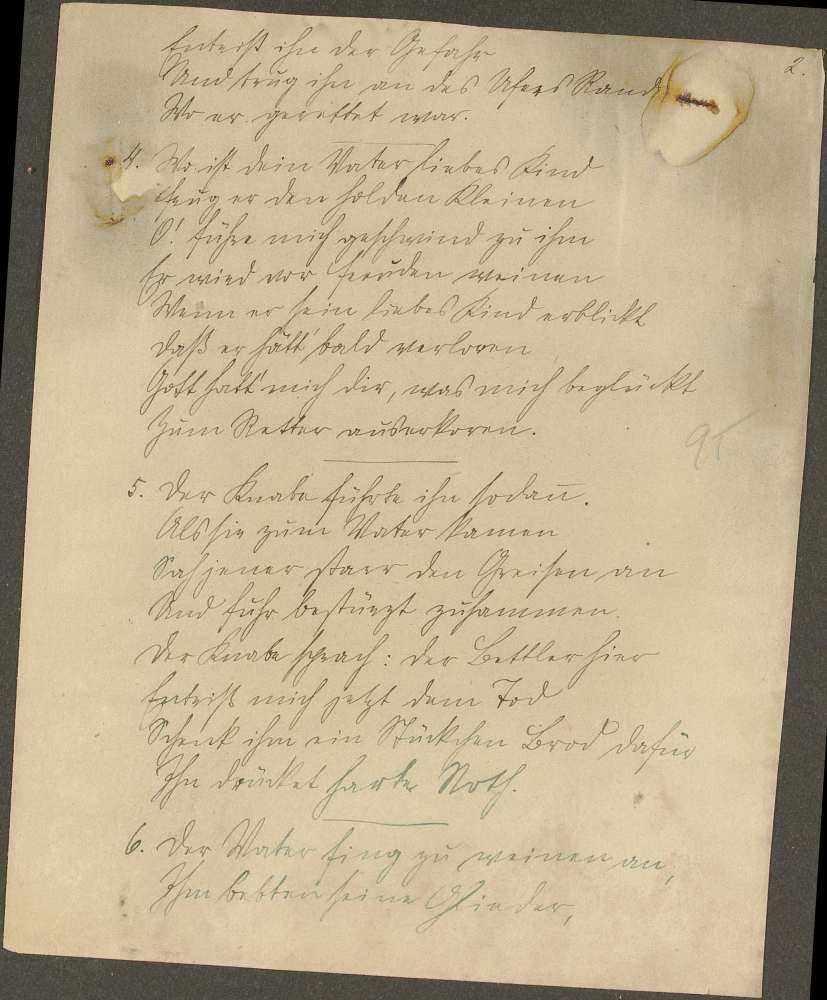 2.
Entreißt ihn der Gefahr
Und trug ihn an des Ufers Rand
Wo er gerettet war.
4. Wo ist dein Vater liebes Kind
frug er den holden Kleinen
O! führe mich geschwind zu ihm
Er wird vor Freuden weinen
Wenn er sein liebes Kind erblickt
Daß er hätt' bald verloren
Gott hatt' mich dir, was mich beglückt
Zum Retter auserkoren.
95
5. Der Knabe führte ihn sodan̄.
Als sie zum Vater kamen
Sah jener starr den Greisen an
Und fuhr bestürzt zusammen.
Der Knabe sprach: der Bettler hier
Entriß mich jetzt dem Tod
Schenk ihm ein Stückchen Brod dafür
Ihn drücket harte Noth.
6. Der Vater fing zu weinen an,
Ihm bebten seine Glieder,